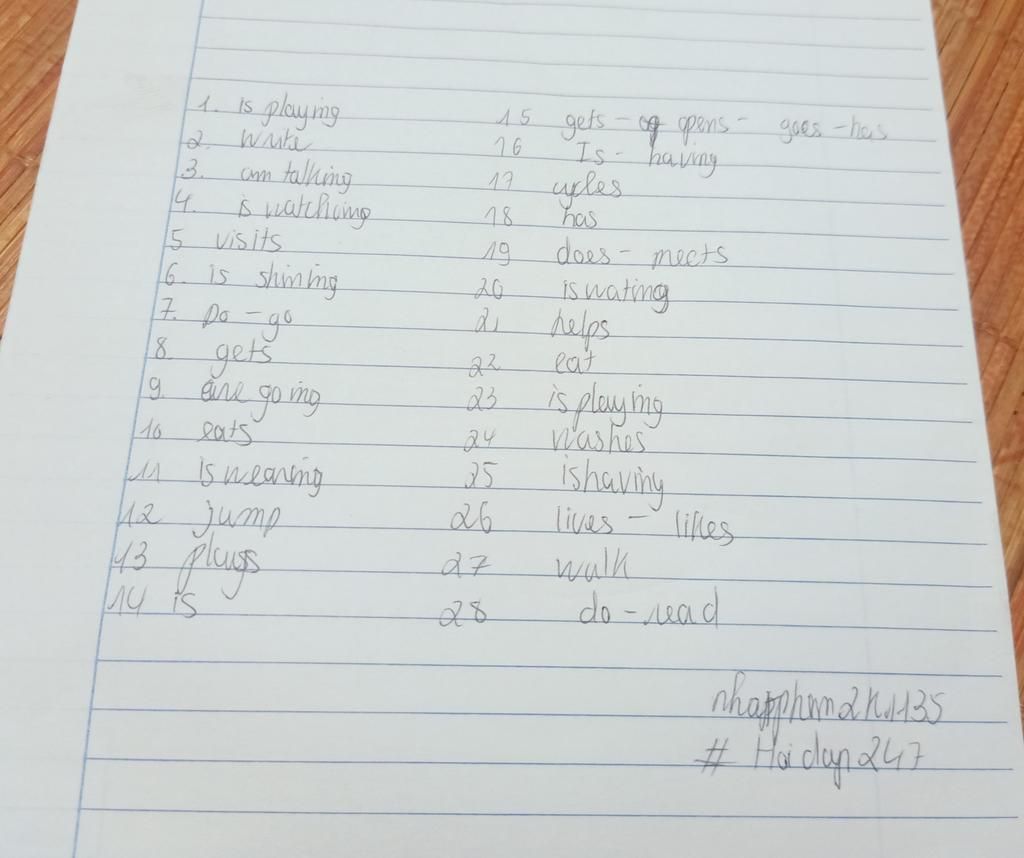 1. is playing
2. Write
3. am talking
4. is watching
5 visits
6. is shining
7. Do - go
8. gets
9. are going
10 eats
11 is wearing
12 jump
13 plays
14 is
15 gets - opens - goes - has
16 Is - having
17 cycles
18 has
19 does - meets
20 is wating
21 helps
22 eat
23 is playing
24 washes
25 is having
26 lives - likes
27 walk
28 do - read
# Hoidap247